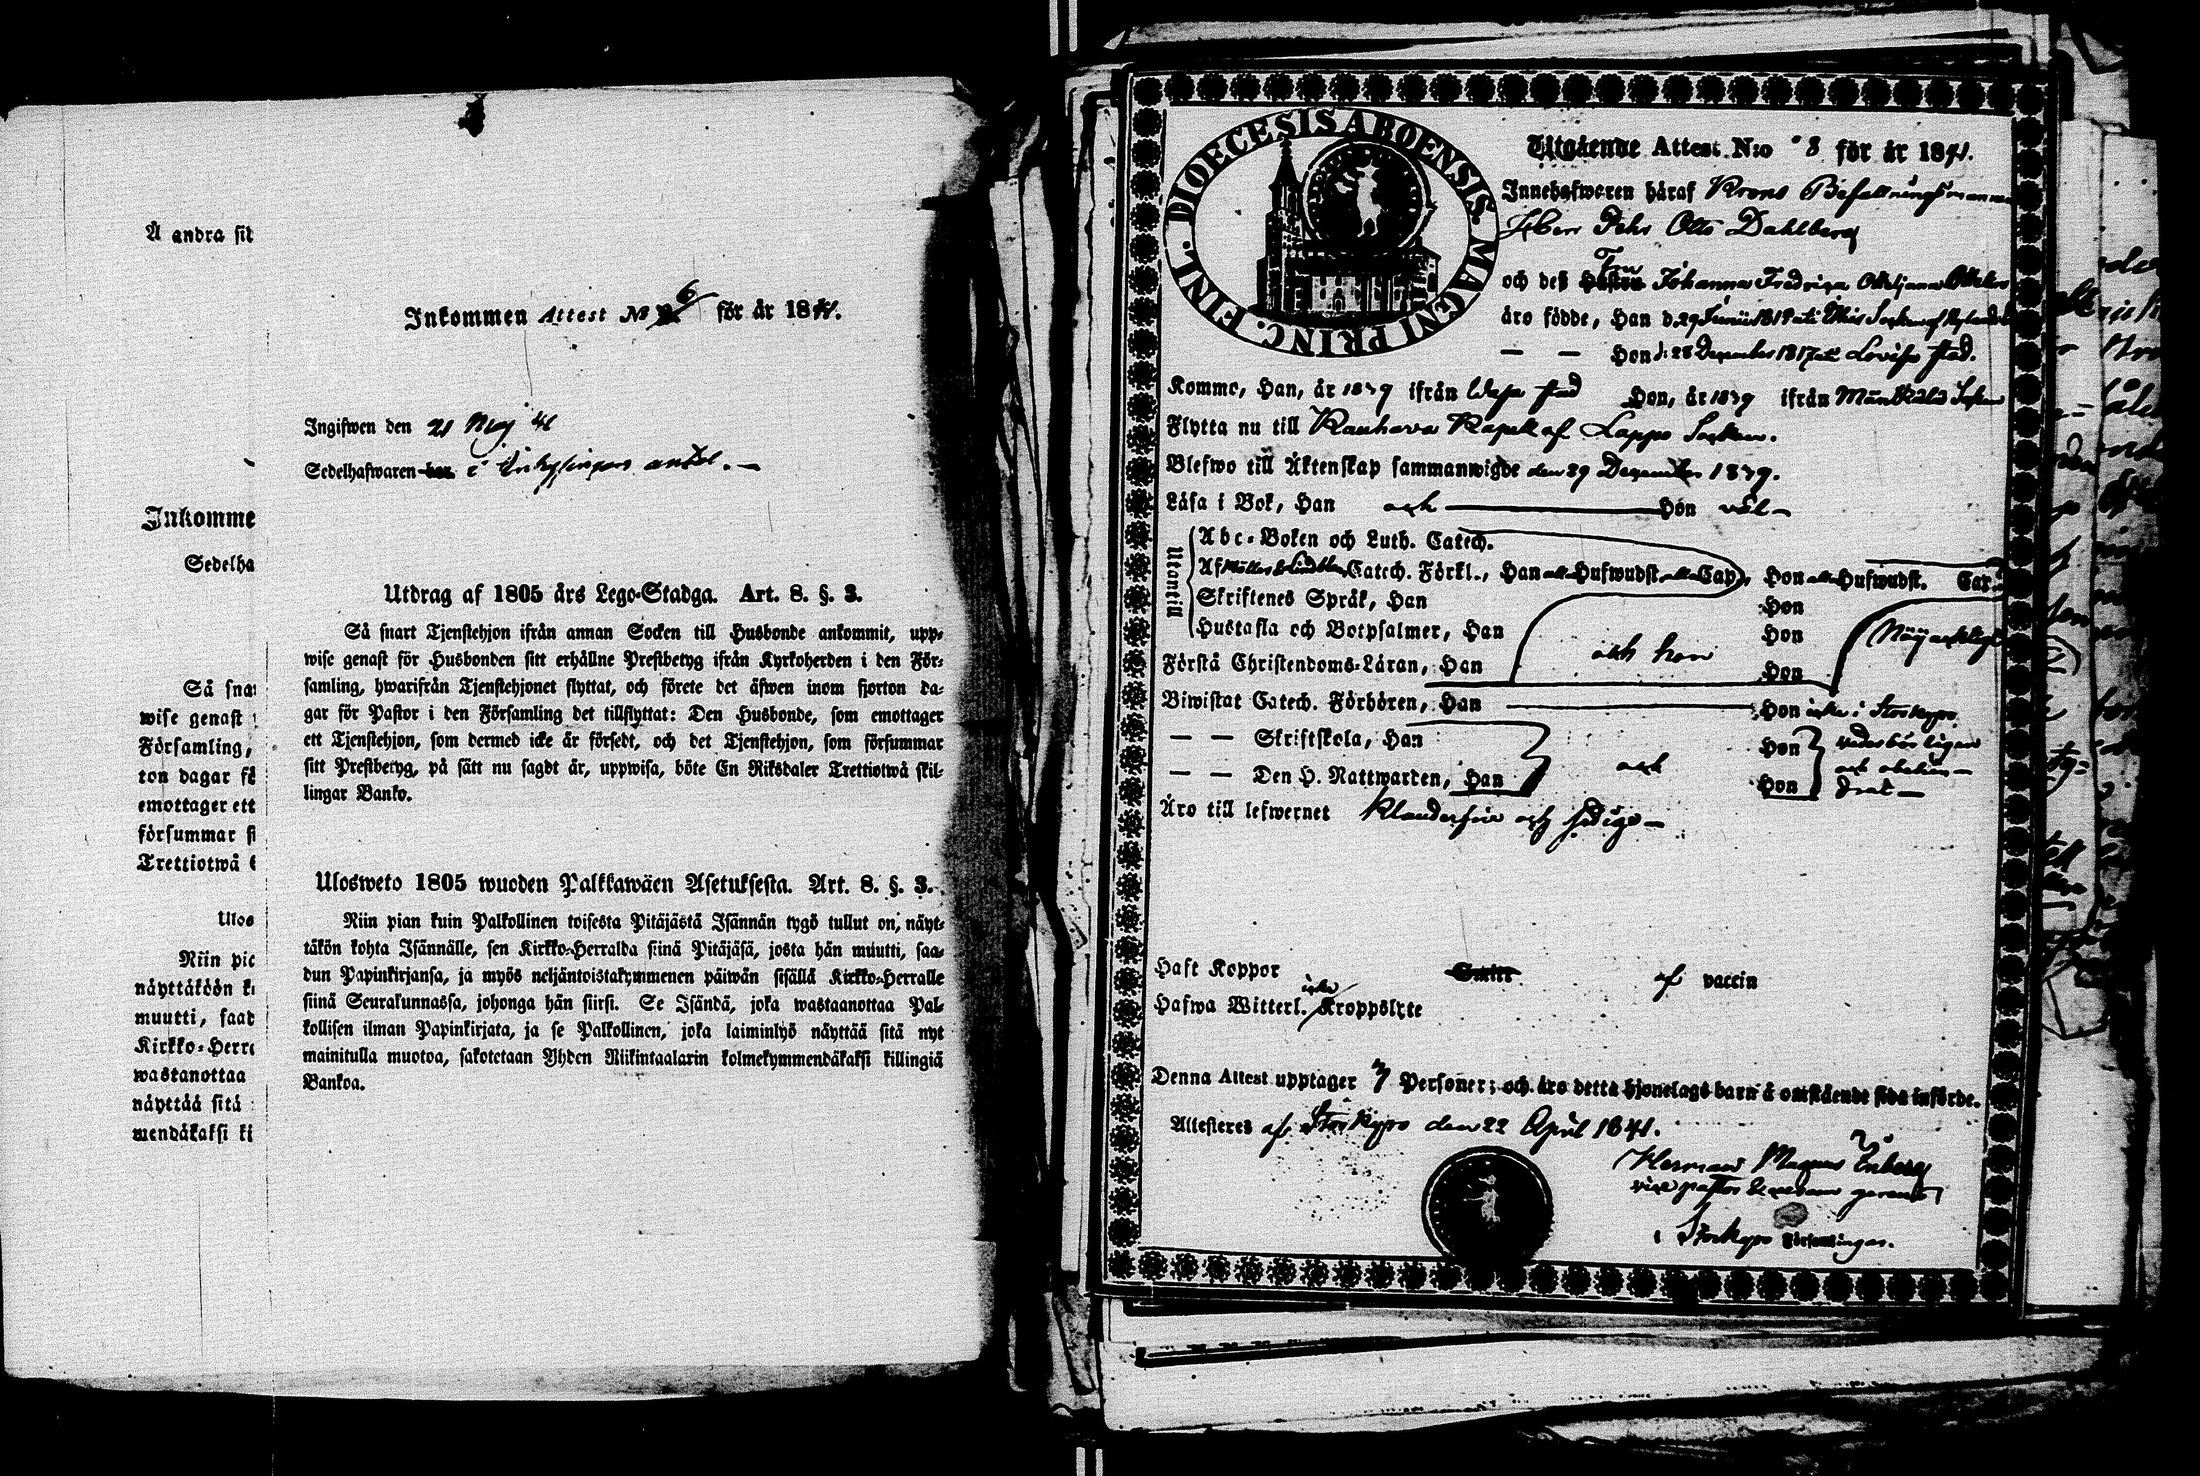 Å andra sid
Inkomme
Sedelha
Så snar
wise genast
Församling,
ton dagar fö
emottager ett
försummar si
Trettiotwå
Ulos
Niin pie
näyttäköön k
muutti, saad
Kirkko-Herr
wastanottaa
näyttää sitä
mendäkaksi ki
Inkommen Attest No 6 för år 1841.
Ingifwen den 21 Maj 41
Sedelhafwaren har i
Utdrag af 1805 års Lego-Stadga. Art. 8. §. 3.
Så snart Tjenstehjon ifrån annan Socken till Husbonde ankommit, upp-
wise genast för Husbonden sitt erhållne Prestbetyg ifrån Kyrkoherden i den För-
samling, hwarifrån Tjenstehjonet flyttat, och förete det äfwen inom fjorton da-
gar för Pastor i den Församling det tillflyttat: Den Husbonde, som emottager
ett Tjenstehjon, som dermed icke är försedt, och det Tjenstehjon, som försummar
sitt Prestbetyg, på sätt nu sagdt är, uppwisa, böte En Riksdaler Trettiotwå skil-
lingar Banko.
Ulosweto 1805 wuoden Palkkawäen Asetuksesta. Art. 8. §. 3.
Niin pian kuin Palkollinen toisesta Pitäjästä Isännän tygö tullut on, näyt-
täkön kohta Isännälle, sen Kirkko-Herralda siinä Pitäjäsä, josta hän muutti, saa-
dun Papinkirjansa, ja myös neljäntoistakymmenen päiwän sisällä Kirkko-Herralle
siinä Seurakunnassa, johonga hän siirsi. Se Isändä, joka wastaanottaa Pal-
kollisen ilman Papinkirjata, ja se Palkollinen, joka laiminlyö näyttää sitä nyt
mainitulla muotoa, sakotetaan Yhden Riikintaalarin kolmekymmendäkaksi killingiä
Bankoa.
DIOECESIS ABOENSIS MAGNI PRINC. FINL.
Utgående Attest N:o 8 för år 1841.
Innehafwaren häraf Krono Befallningsmannen
Herr Pehr Otto Dahlberg
och deß Hustru Fru Johanna Fredrica
äro födde, Han d. 29 Junii 1819 uti
— — Hon d: 28 December 1817 uti Lovisa stad.
Komne, Han, år 1839 ifrån Wasa stad Hon, år 1839 ifrån
Flytta nu till Kauhava Kapell af Lappo Socken.
Blefwo till Äktenskap sammanwigde den 29 December 1839.
Läsa i Bok, Han och Hon väl
Utantill
Abc-Boken och Luth. Catech.
Af Möllers & Lindbloms Catech. Förkl., Han alla Hufwudst. alla Cap. Hon alla Hufwudst. Cap.
Skriftenes Språk, Han Hon
Hustafla och Botpsalmer, Han Hon
Förstå Christendoms-Läran, Han och hon Hon Nöjaktligt
Biwistat Catech. Förhören, Han Hon icke i Storkyro
— — Skriftskola, Han Hon vederbörligen
— — Den H. Nattwarden, Han och Hon
Äro till lefwernet Klanderfrie och sedige
Haft Koppor Smitt af vaccin
Hafwa Witterl. icke Kroppslyte
Denna Attest upptager Personer; och äro detta hjonelags barn å omstående sida införde.
Attesteres af Storkyro den 22 April 1841.
Herman Magnus Enberg
vice pastor
i Storkyro Församlingar.